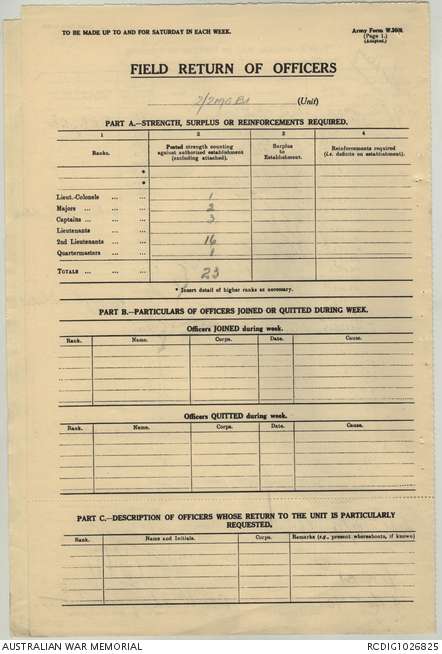 TO BE MADE UP TO AND FOR SATURDAY IN EACH WEEK.
Army Form W.3008
(Page 1.)
(Adapted.)
FIELD RETURN OF OFFICERS
2/2 MG Bn (Unit)
PART A.—STRENGTH, SURPLUS OR REINFORCEMENTS REQUIRED.
1 2 3 4
Ranks. Posted strength counting against authorized establishment (excluding attached). Surplus to Establishment. Reinforcements required (i.e. deficits on establishment).
*
*
Lieut.-Colonels ... ... 1
Majors ... ... ... 2
Captains ... ... ... 3
Lieutenants ... ...
2nd Lieutenants ... ... 16
Quartermasters ... ... 1
TOTALS ... ... ... 23
* Insert detail of higher ranks as necessary.
PART B.—PARTICULARS OF OFFICERS JOINED OR QUITTED DURING WEEK.
Officers JOINED during week.
Rank. Name. Corps. Date. Cause.
Officers QUITTED during week.
Rank. Name. Corps. Date. Cause.
PART C.—DESCRIPTION OF OFFICERS WHOSE RETURN TO THE UNIT IS PARTICULARLY
REQUESTED.
Rank. Name and Initials. Corps. Remarks (e.g., present whereabouts, if known)
AUSTRALIAN WAR MEMORIAL
RCDIG1026825